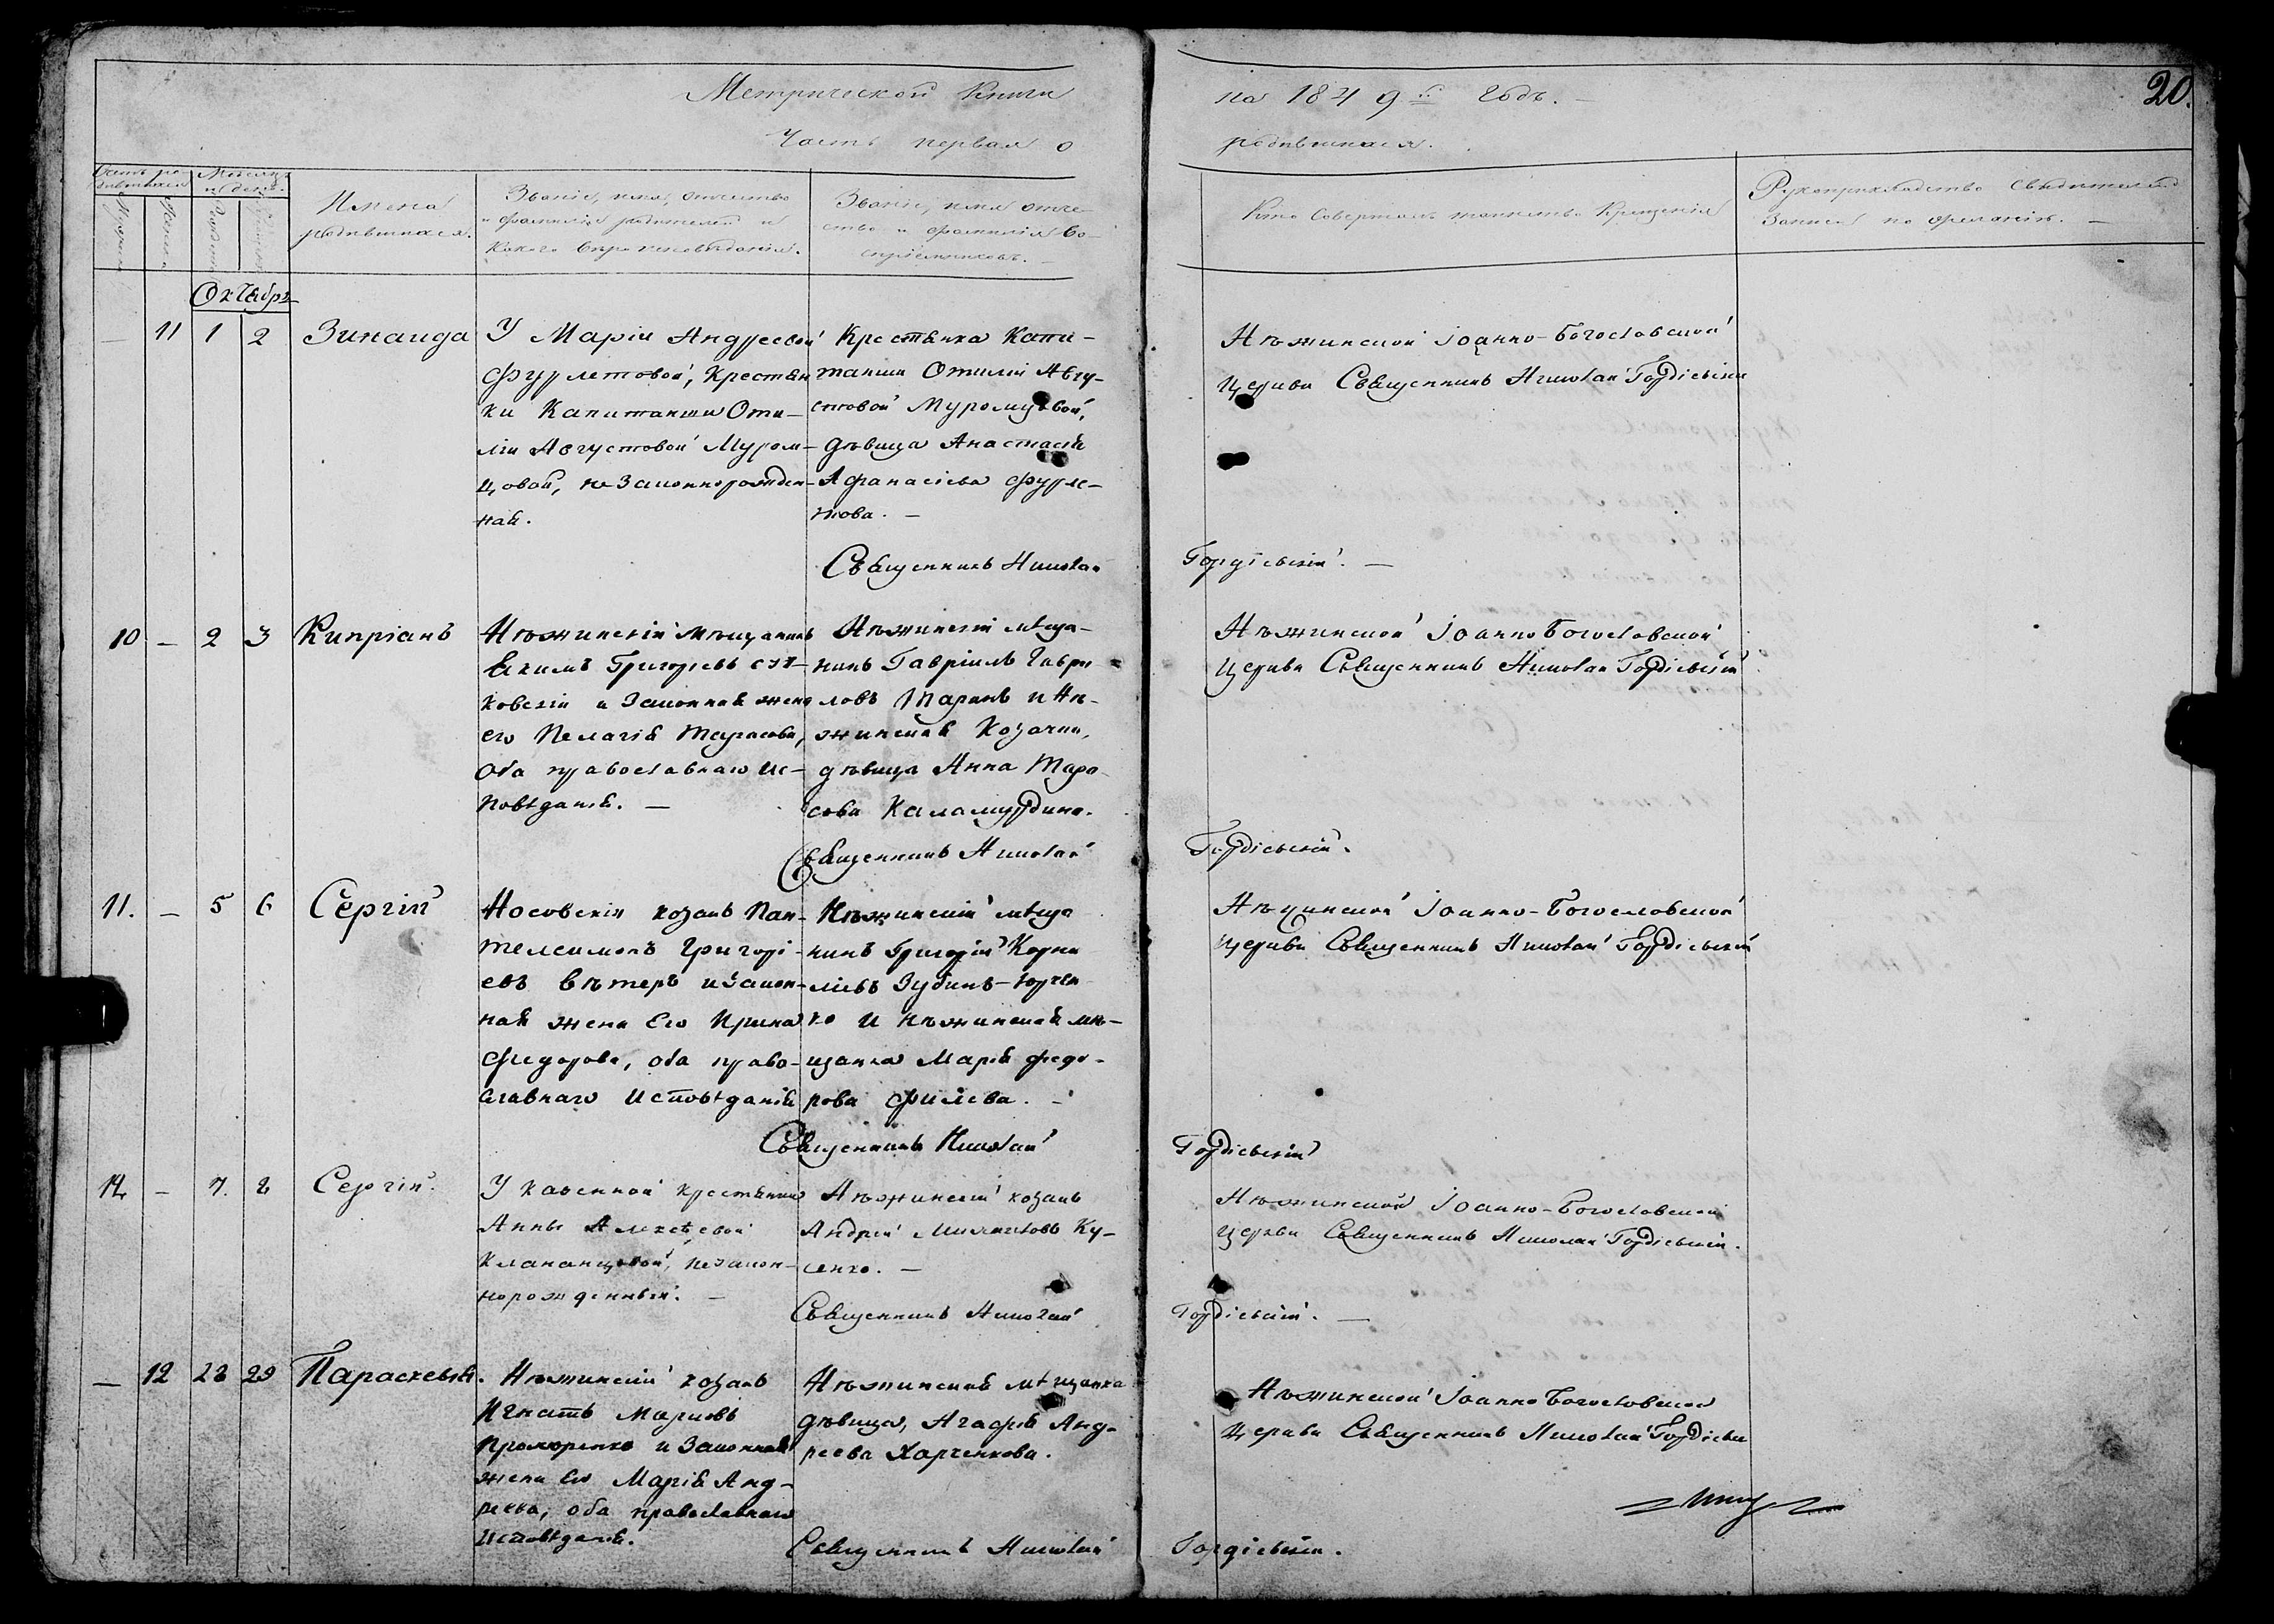 Метрической Книги
на 1849 го Годъ.
20.
Часть первая о
родившихся.
Счетъ родившихся
Мѣсяцъ и день.
Мужеска
Женска
Рожденія
Крещенія
Имена
родившихся.
Званіе, имя, отчество
и фамилія родителей и
какого вѣроисповѣданія.
Званіе, имя отче-
ство и фамилія во-
спріемниковъ. —
Кто совершалъ таинство Крещенія
Рукоприкладство свидѣтелей
записи по желанію. —
Октябрь
— 11 1 2 Зинаида
У Маріи Андреевой
Фурлетовой, Крестьян
ки Капитанши Оти-
ліи Августовой Муром-
цовой, незаконнорожден-
ная.
Крестьянка Капи-
танши Отиліи Авгу-
стовой Муромцовой,
дѣвица Анастасія
Афанасіева Фурле-
това. —
Нѣжинской Іоанно-Богословской
Церкви Священникъ Николай Гордіевскі
Священникъ Николай
Гордіевскій. —
10 — 2 3 Кипріанъ
Нѣжинскій мѣщанинъ
Екимъ Григорьевъ
ковскій и Законная жена
его Пелагія Тарасова,
оба православнаго ис-
повѣданія. —
Нѣжинскій мѣща-
нинъ Гавріилъ Гаври
ловъ Таранъ и Нѣ-
жинская Козачка,
дѣвица Анна Тара
сова
Нѣжинской Іоанно Богословской
Церкви Священникъ Николай Гордіевскій
Священникъ Николай
Гордіевскій.
11. — 5 6 Сергій
Носовскій козакъ Пан-
телеимонъ Григорі-
евъ Вѣтеръ и Закон-
ная жена Его Ирина
Федорова, оба право-
славнаго Исповѣданія
Нѣжинскій мѣща
нинъ Григорій Корни
ліевъ Зубинъ-Юрчен
ко и Нѣжинская мѣ-
щанка Марія Федо-
рова Филіева. —
Нѣжинской Іоанно-Богословской
Церкви Священникъ Николай Гордіевскій
Священникъ Николай
Гордіевскій
12 — 7. 8 Сергій.
У казенной крестьянки
Анны Алексѣевой
незакон-
норожденный. —
Нѣжинскій козакъ
Андрей Михайловъ Ку-
ценко. —
Нѣжинской Іоанно-Богословской
Церкви Священникъ Николай Гордіевскій.
Священникъ Николай
Гордіевскій. —
— 12 28 29 Параскевія.
Нѣжинскій козакъ
Игнатъ Марковъ
Прохоренко и Законная
жена Его Марія Анд-
реева, оба православнаго
Исповѣданія.
Нѣжинская мѣщанка
дѣвица, Агафія Анд-
реева Харченкова.
Нѣжинской Іоанно Богословской
Церкви Священникъ Николай Гордіевскі
Священникъ Николай
Гордіевскій.